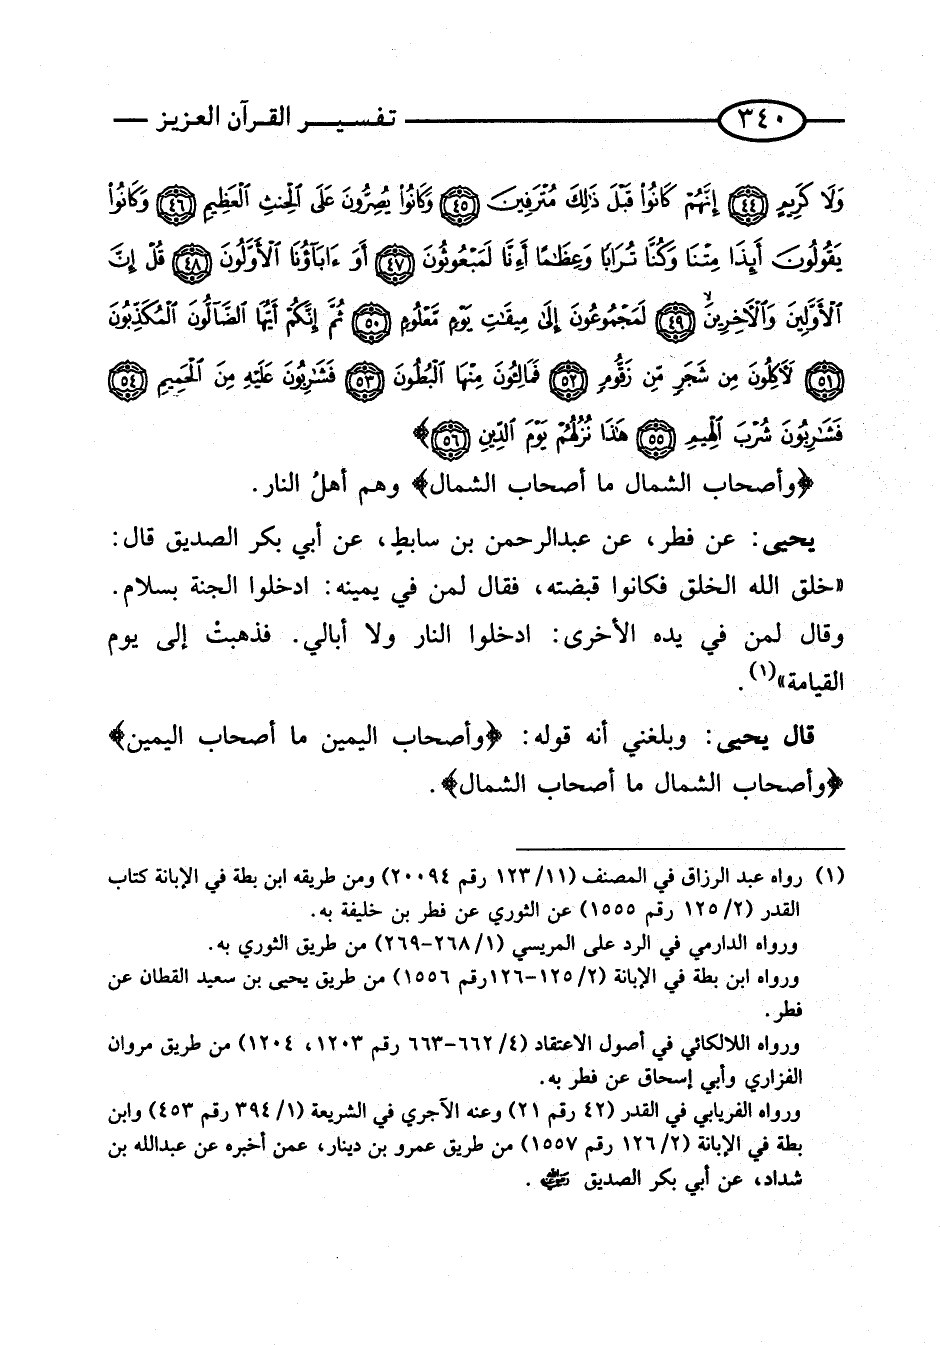 ٣٤٠ تفسير القرآن العزيز
وَلَا كَرِيمٍ ﴿٤٤﴾ إِنَّهُمْ كَانُوا۟ قَبْلَ ذَٰلِكَ مُتْرَفِينَ ﴿٤٥﴾ وَكَانُوا۟ يُصِرُّونَ عَلَى ٱلْحِنثِ ٱلْعَظِيمِ ﴿٤٦﴾ وَكَانُوا۟
يَقُولُونَ أَئِذَا مِتْنَا وَكُنَّا تُرَابًا وَعِظَٰمًا أَءِنَّا لَمَبْعُوثُونَ ﴿٤٧﴾ أَوَ ءَابَآؤُنَا ٱلْأَوَّلُونَ ﴿٤٨﴾ قُلْ إِنَّ
ٱلْأَوَّلِينَ وَٱلْءَاخِرِينَ ﴿٤٩﴾ لَمَجْمُوعُونَ إِلَىٰ مِيقَٰتِ يَوْمٍ مَّعْلُومٍ ﴿٥٠﴾ ثُمَّ إِنَّكُمْ أَيُّهَا ٱلضَّآلُّونَ ٱلْمُكَذِّبُونَ
﴿٥١﴾ لَءَاكِلُونَ مِن شَجَرٍ مِّن زَقُّومٍ ﴿٥٢﴾ فَمَالِـُٔونَ مِنْهَا ٱلْبُطُونَ ﴿٥٣﴾ فَشَٰرِبُونَ عَلَيْهِ مِنَ ٱلْحَمِيمِ ﴿٥٤﴾
فَشَٰرِبُونَ شُرْبَ ٱلْهِيمِ ﴿٥٥﴾ هَٰذَا نُزُلُهُمْ يَوْمَ ٱلدِّينِ ﴿٥٦﴾﴾
﴿وأصحاب الشمال ما أصحاب الشمال﴾ وهم أهلُ النار.
يحيى: عن فطر، عن عبدالرحمن بن سابطٍ، عن أبي بكر الصديق قال:
«خلق الله الخلق فكانوا قبضته، فقال لمن في يمينه: ادخلوا الجنة بسلام.
وقال لمن في يده الأخرى: ادخلوا النار ولا أبالي. فذهبتْ إلى يوم
القيامة»(١).
قال يحيى: وبلغني أنه قوله: ﴿وأصحاب اليمين ما أصحاب اليمين﴾
﴿وأصحاب الشمال ما أصحاب الشمال﴾.
(١) رواه عبد الرزاق في المصنف (١٢٣/١١ رقم ٢٠٠٩٤) ومن طريقه ابن بطة في الإبانة كتاب
القدر (١٢٥/٢ رقم ١٥٥٥) عن الثوري عن فطر بن خليفة به.
ورواه الدارمي في الرد على المريسي (٢٦٨/١-٢٦٩) من طريق الثوري به.
ورواه ابن بطة في الإبانة (١٢٥/٢-١٢٦رقم ١٥٥٦) من طريق يحيى بن سعيد القطان عن
فطر.
ورواه اللالكائي في أصول الاعتقاد (٦٦٢/٤-٦٦٣ رقم ١٢٠٣، ١٢٠٤) من طريق مروان
الفزاري وأبي إسحاق عن فطر به.
ورواه الفريابي في القدر (٤٢ رقم ٢١) وعنه الآجري في الشريعة (٣٩٤/١ رقم ٤٥٣) وابن
بطة في الإبانة (١٢٦/٢ رقم ١٥٥٧) من طريق عمرو بن دينار، عمن أخبره عن عبدالله بن
شداد، عن أبي بكر الصديق رضي الله عنه.